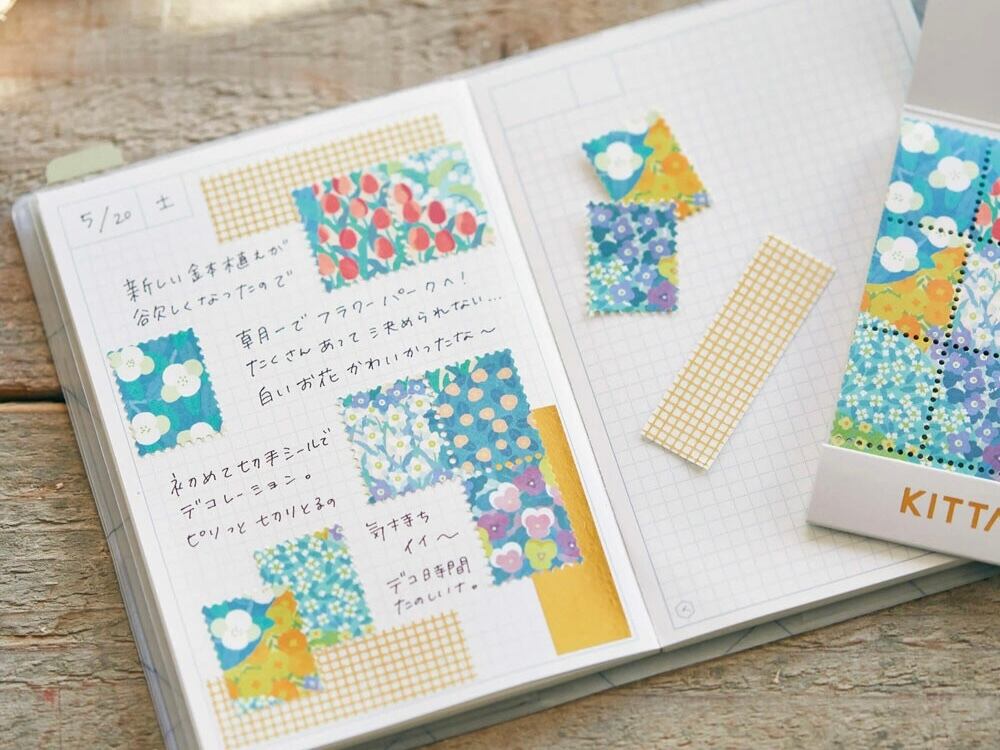 5/20 土
新しい鉢植えが
欲しくなったので
朝一で フラワーパークへ!
たくさん あって 決められない...
白いお花 かわいかったな〜
初めて切手シールで
デコレーション。
ピリっと切りとるの
気持ち
イイ〜
デコ時間
たのしいな。
KITTA